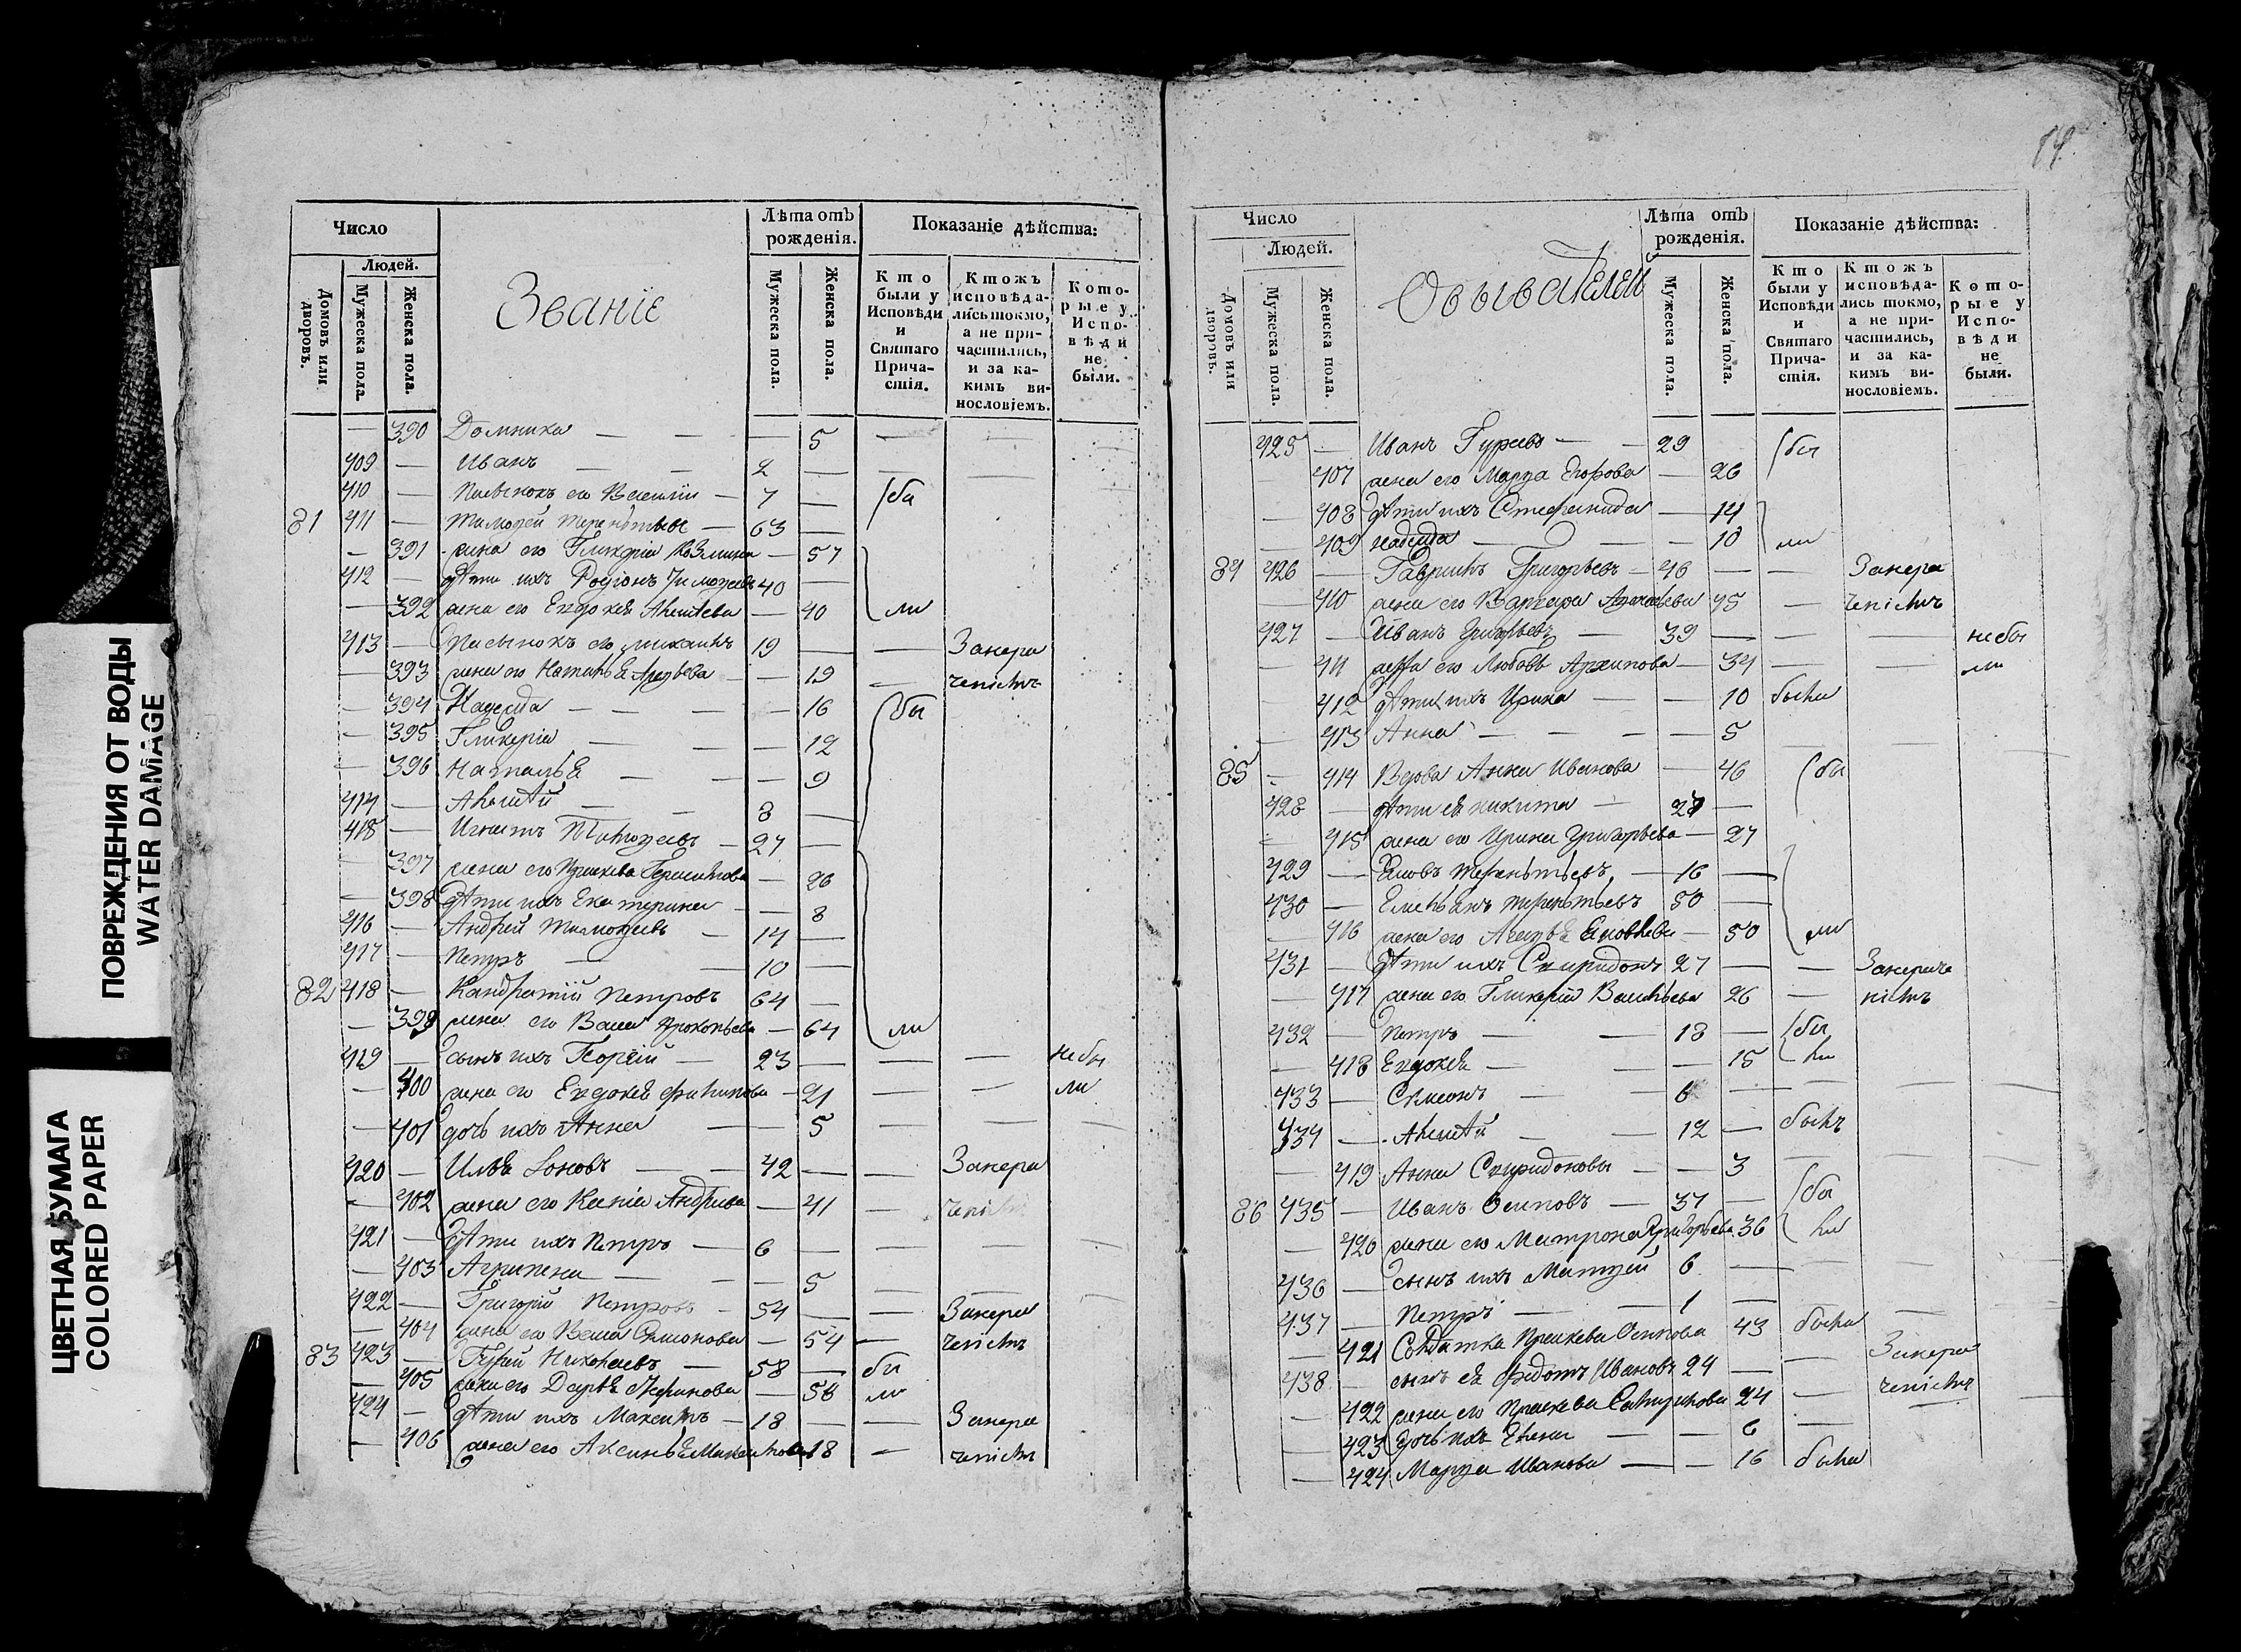 ПОВРЕЖДЕНИЯ ОТ ВОДЫ
WATER DAMAGE
ЦВЕТНАЯ БУМАГА
COLORED PAPER
Число
Людей.
Домовъ или дворовъ.
Мужеска пола.
Женска пола.
Званіе
Лѣта отъ рожденія.
Мужеска пола.
Женска пола.
Показаніе дѣйства:
Кто были у Исповѣди и Святаго Причастія.
Ктожъ исповѣдались токмо, а не причастились, и за какимъ винословіемъ.
Которые у Исповѣди не были.
390 Домника — 5
409 Иванъ 2
410 Пасынокъ его Василій 7 бы
81 411 Тимофей Терентьевъ 63
391 жена его Гликерія Козмина 57
412 дѣти ихъ Родіонъ Тимофеевъ 40
392 жена его Евдокія Алексѣева 40 ли
413 Пасынокъ его Михаилъ 19 Занера
393 жена его Наталья 19 ченіемъ
394 Надежда 16 бы
395 Гликерія 12
396 Наталья 9
414 Алексѣй 8
415 Игнатъ Тимофеевъ 27
397 жена его Праскева Герасимова 26
398 дѣти ихъ Екатерина 8
416 Андрей Тимофеевъ 14
417 Петръ 10
82 418 Кандратій Петровъ 64
399 жена его Васса Прокопьева 64 ли
419 сынъ ихъ Георгій 23 небы
400 жена его Евдокія Филипова 21 ли
401 дочь ихъ Анна 5
420 Илья Іоновъ 42 Занера
402 жена его Ксенія Андреева 41 ченіемъ
421 дѣти ихъ Петръ 6
403 Агрипена 5
422 Григорій Петровъ 54 Занера
404 жена его Васса Симонова 54 ченіемъ
83 423 Гурій Николаевъ 58 бы
405 жена его Дарья 58 ли
424 дѣти ихъ Максимъ 18 Занера
406 жена его Аксинья 18 ченіемъ
Число
Людей.
Домовъ или дворовъ.
Мужеска пола.
Женска пола.
Обывателей
Лѣта отъ рожденія.
Мужеска пола.
Женска пола.
Показаніе дѣйства:
Кто были у Исповѣди и Святаго Причастія.
Ктожъ исповѣдались токмо, а не причастились, и за какимъ винословіемъ.
Которые у Исповѣди не были.
425 Иванъ Гурьевъ 29 бы
407 жена его Марфа Егорова 26
408 дѣти ихъ Стефанида 14
409 Надежда 10 ли
84 426 Гаврилъ Григорьевъ 46 Занера
410 жена его Варвара 45 ченіемъ
427 Иванъ Григорьевъ 39 небы
411 жена его Любовь Архипова 34 ли
412 дѣти ихъ Ирина 10 была
413 Анна 5
85 414 Вдова Анна Иванова 46 бы
428 дѣти ея Никита
415 жена его Ирина Григорьева 27
429 Терентьевъ 16
430 Емельянъ Терентьевъ 50
416 жена его 50 ли
431 дѣти ихъ Спиридонъ 27 Занерче
417 жена его Гликерія Васильева 26 ніемъ
432 Петръ 18 бы
418 Евдокія 15 ли
433 Симеонъ 6
434 Алексѣй 12 былъ
419 Анна Спиридонова 3
86 435 Иванъ Осиповъ 37 бы
420 жена его Матрона Григорьева 36 ли
436 сынъ ихъ Матфей 6
437 Петръ 1
421 Солдатка Праскева Осипова 43 была
438 сынъ ея Федотъ Ивановъ 24 Занера
422 жена его Праскева 24 ченіемъ
423 дочь ихъ Елена 6
424 Марфа Иванова 16 была